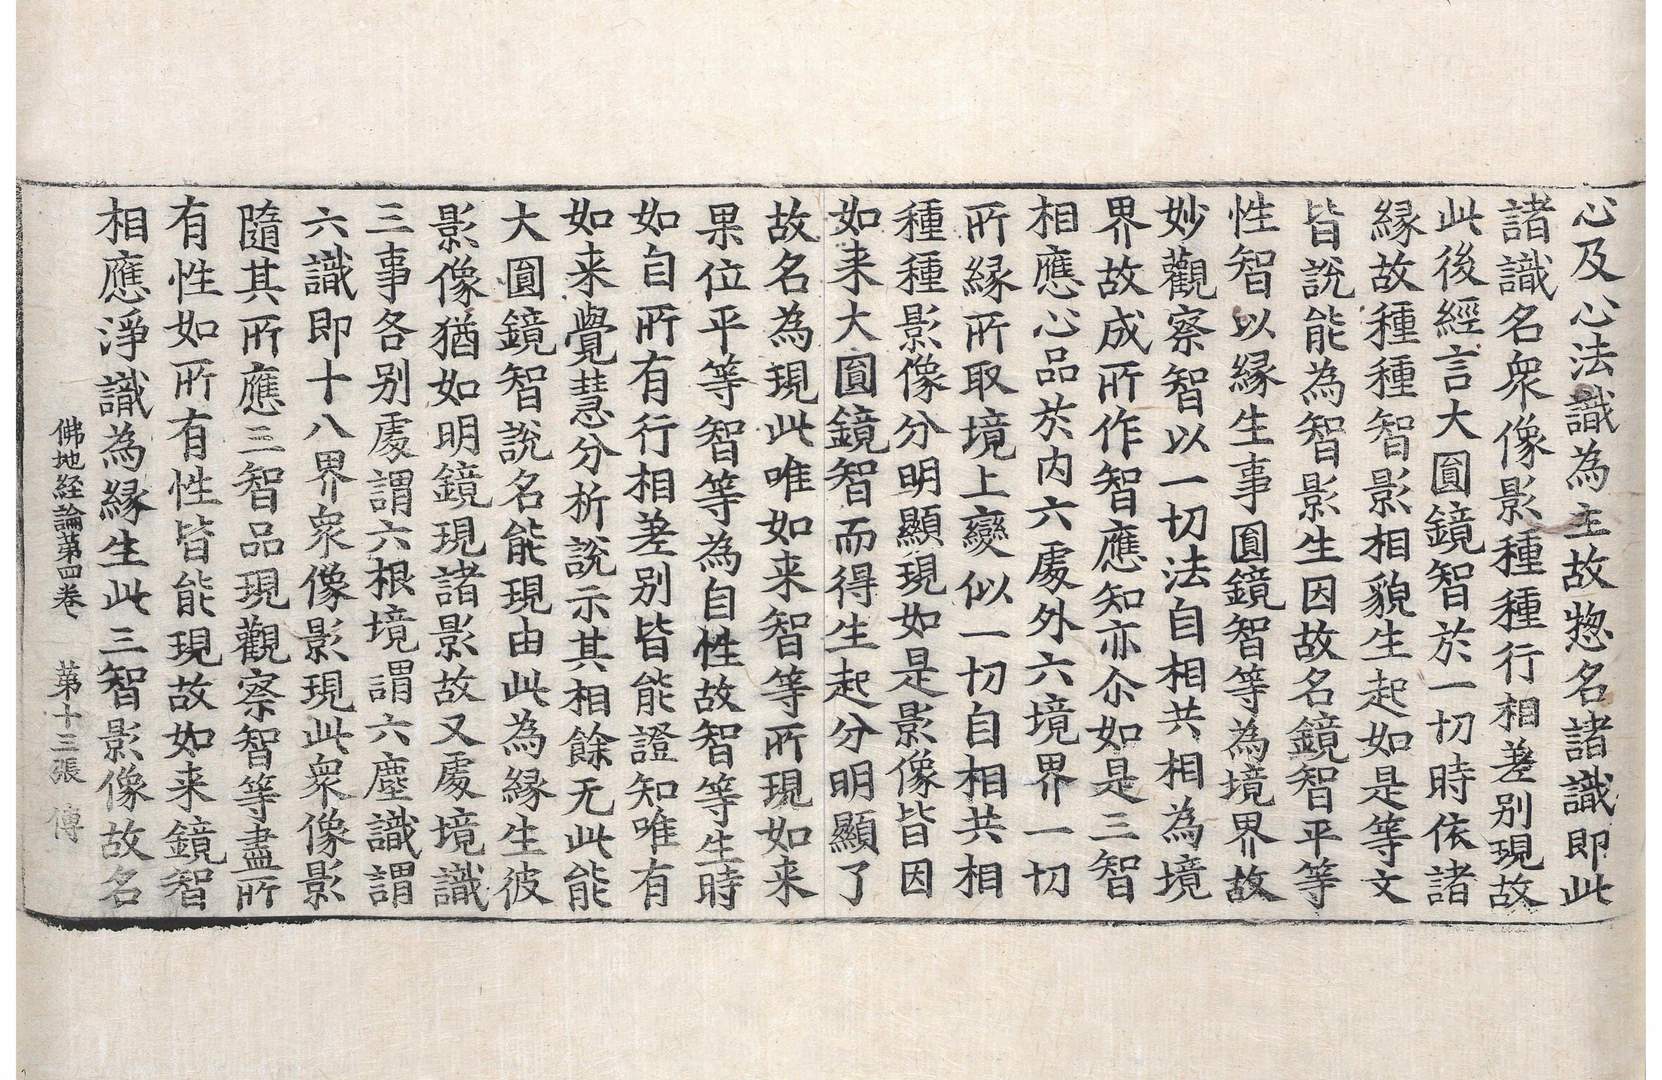 心及心法識為主故惣名諸識即此
諸識名衆像影種種行相差别現故
此後經言大圓鏡智於一切時依諸
縁故種種智影相貌生起如是等文
皆說能為智影生因故名鏡智平等
性智以縁生事圓鏡智等為境界故
妙觀察智以一切法自相共相為境
界故成所作智應知亦尒如是三智
相應心品於内六處外六境界一切
所縁所取境上變似一切自相共相
種種影像分明顯現如是影像皆因
如来大圓鏡智而得生起分明顯了
故名為現此唯如来智等所現如来
果位平等智等為自性故智等生時
如自所有行相差别皆能證知唯有
如来覺慧分析說示其相餘无此能
大圓鏡智說名能現由此為縁生彼
影像猶如明鏡現諸影故又處境識
三事各别處謂六根境謂六塵識謂
六識即十八界衆像影現此衆像影
隨其所應三智品現觀察智等盡所
有性如所有性皆能現故如来鏡智
相應淨識為縁生此三智影像故名
佛地経論第四卷 第十三張 傳